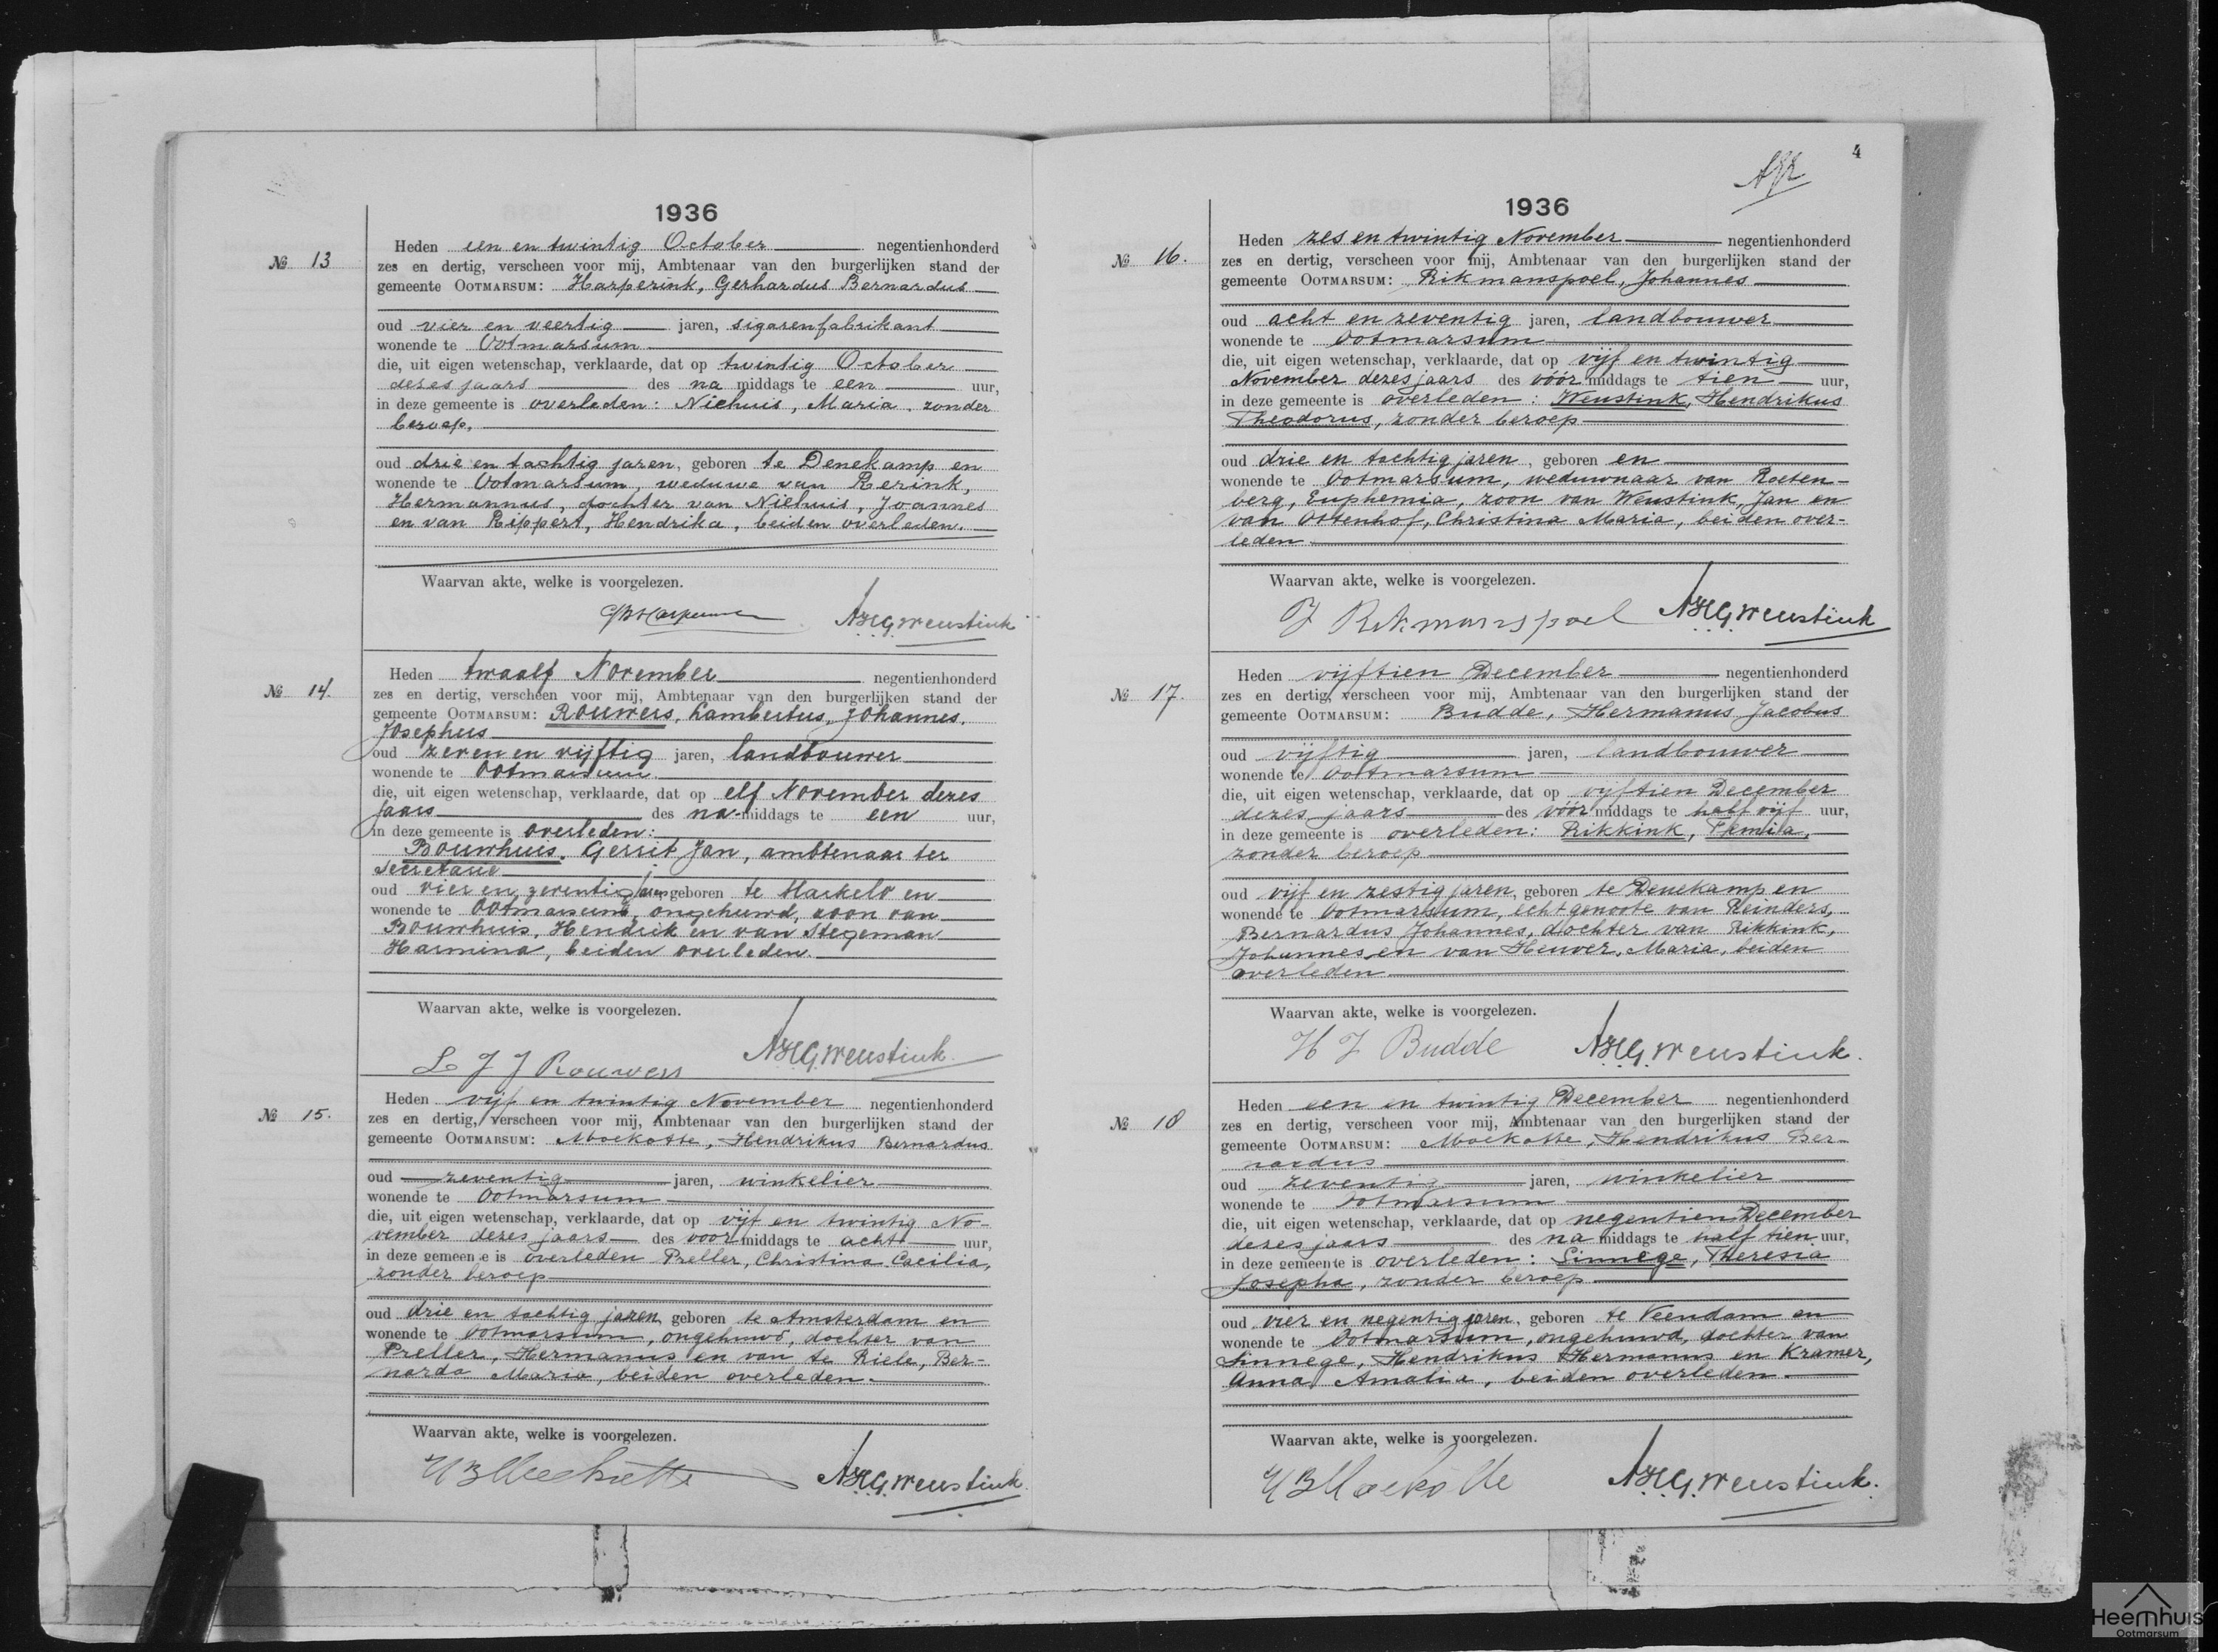 1936
№ 13
Heden een en twintig October negentienhonderd
zes en dertig, verscheen voor mij, Ambtenaar van den burgerlijken stand der
gemeente OOTMARSUM: Harperink, Gerhardus Bernardus
oud vier en veertig jaren, sigarenfabrikant
wonende te Ootmarsum
die, uit eigen wetenschap, verklaarde, dat op twintig October
dezes jaars des na middags te een uur,
in deze gemeente is overleden: Niehuis, Maria, zonder
beroep,
oud drie en tachtig jaren, geboren te Denekamp en
wonende te Ootmarsum, weduwe van Rerink,
Hermannus, dochter van Niehuis, Joannes
en van Rippert, Hendrika, beiden overleden.
Waarvan akte, welke is voorgelezen.
AHGWeustink
№ 14.
Heden twaalf November negentienhonderd
zes en dertig, verscheen voor mij, Ambtenaar van den burgerlijken stand der
gemeente OOTMARSUM: Rouwers, Lambertus, Johannes,
Josephus
oud zeven en vijftig jaren, landbouwer
wonende te Ootmarsum
die, uit eigen wetenschap, verklaarde, dat op elf November dezes
jaars des na-middags te een uur,
in deze gemeente is overleden:
Bouwhuis, Gerrit Jan, ambtenaar ter
secretarie
oud vier en zeventig jaren geboren te Markelo en
wonende te Ootmarsum, ongehuwd, zoon van
Bouwhuis, Hendrik en van Stegeman
Harmina, beiden overleden.
Waarvan akte, welke is voorgelezen.
L J J Rouwers AHGWeustink.
№ 15.
Heden vijf en twintig November negentienhonderd
zes en dertig, verscheen voor mij, Ambtenaar van den burgerlijken stand der
gemeente OOTMARSUM: Moekotte, Hendrikus Bernardus
oud zeventig jaren, winkelier
wonende te Ootmarsum
die, uit eigen wetenschap, verklaarde, dat op vijf en twintig No-
vember dezes jaars des voor middags te acht uur,
in deze gemeente is overleden Preller, Christina Caecilia,
zonder beroep
oud drie en tachtig jaren, geboren te Amsterdam en
wonende te Ootmarsum, ongehuwd, dochter van
Preller, Hermanus en van te Riele, Ber-
narda Maria, beiden overleden.
Waarvan akte, welke is voorgelezen.
HBMoekotte AHGWeustink.
4
1936
№ 16.
Heden zes en twintig November negentienhonderd
zes en dertig, verscheen voor mij, Ambtenaar van den burgerlijken stand der
gemeente OOTMARSUM: Rikmanspoel, Johannes
oud acht en zeventig jaren, landbouwer
wonende te Ootmarsum
die, uit eigen wetenschap, verklaarde, dat op vijf en twintig
November dezes jaars des vóór middags te tien uur,
in deze gemeente is overleden: Weustink, Hendrikus
Theodorus, zonder beroep
oud drie en tachtig jaren, geboren en
wonende te Ootmarsum, weduwnaar van Roeten-
berg, Euphemia, zoon van Weustink, Jan en
van Ottenhof, Christina Maria, beiden over-
leden
Waarvan akte, welke is voorgelezen.
J Rikmanspoel AHGWeustink
№ 17.
Heden vijftien December negentienhonderd
zes en dertig, verscheen voor mij, Ambtenaar van den burgerlijken stand der
gemeente OOTMARSUM: Budde, Hermanus Jacobus
oud vijftig jaren, landbouwer
wonende te Ootmarsum
die, uit eigen wetenschap, verklaarde, dat op vijftien December
dezes jaars des vóór middags te half vijf uur,
in deze gemeente is overleden: Rikkink,
zonder beroep
oud vijf en zestig jaren, geboren te Denekamp en
wonende te Ootmarsum, echtgenoote van Reinders,
Bernardus Johannes, dochter van Rikkink,
Johannes en van Heuver, Maria, beiden
overleden
Waarvan akte, welke is voorgelezen.
H J Budde AHGWeustink.
№ 18
Heden een en twintig December negentienhonderd
zes en dertig, verscheen voor mij, Ambtenaar van den burgerlijken stand der
gemeente OOTMARSUM: Moekotte, Hendrikus Ber-
nardus
oud zeventig jaren, winkelier
wonende te Ootmarsum
die, uit eigen wetenschap, verklaarde, dat op negentien December
dezes jaars des na middags te half tien uur,
in deze gemeente is overleden: Sinnege, Theresia
Josepha, zonder beroep
oud vier en negentig jaren, geboren te Veendam en
wonende te Ootmarsum, ongehuwd, dochter van
Sinnege, Hendrikus Hermanus en Kramer,
Anna Amalia, beiden overleden.
Waarvan akte, welke is voorgelezen.
HBMoekotte AHGWeustink.
Heemhuis
Ootmarsum